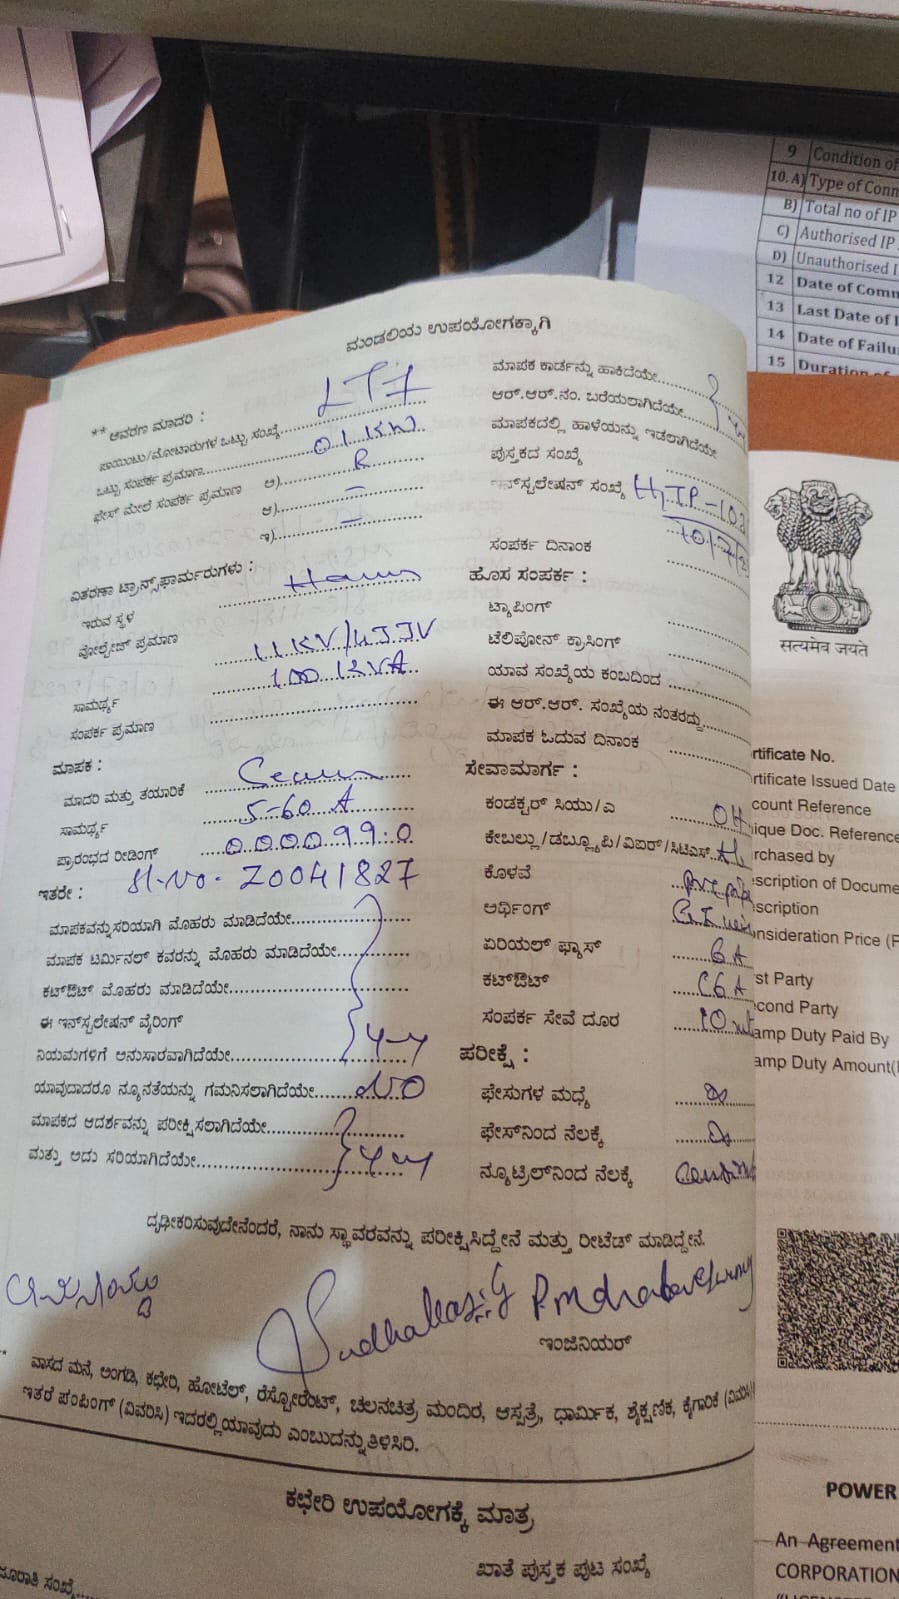 9 Condition of
10. A) Type of Conn
B) Total no of IP
C) Authorised IP
D) Unauthorised I
12 Date of Comm
13 Last Date of I
14 Date of Failu
15 Duration of
ಮಂಡಲಿಯ ಉಪಯೋಗಕ್ಕಾಗಿ
** ಆವರಣ ಮಾದರಿ : LT7
ಪಾಯಿಂಟು/ಮೋಟಾರುಗಳ ಒಟ್ಟು ಸಂಖ್ಯೆ
ಒಟ್ಟು ಸಂಪರ್ಕ ಪ್ರಮಾಣ 01 KW
ಫೇಸ್ ಮೇಲೆ ಸಂಪರ್ಕ ಪ್ರಮಾಣ ಅ) R
ಆ) –
ಇ) –
ವಿತರಣಾ ಟ್ರಾನ್ಸ್‌ಫಾರ್ಮರುಗಳು :
ಇರುವ ಸ್ಥಳ
ವೋಲ್ಟೇಜ್ ಪ್ರಮಾಣ 11 KV/
ಸಾಮರ್ಥ್ಯ 100 KVA
ಸಂಪರ್ಕ ಪ್ರಮಾಣ
ಮಾಪಕ :
ಮಾದರಿ ಮತ್ತು ತಯಾರಿಕೆ
ಸಾಮರ್ಥ್ಯ 5-60 A
ಪ್ರಾರಂಭದ ರೀಡಿಂಗ್ 000099:0
ಇತರೇ : Sl.No- Z0041827
ಮಾಪಕವನ್ನು ಸರಿಯಾಗಿ ಮೊಹರು ಮಾಡಿದೆಯೇ
ಮಾಪಕ ಟರ್ಮಿನಲ್ ಕವರನ್ನು ಮೊಹರು ಮಾಡಿದೆಯೇ
ಕಟ್‌ಔಟ್ ಮೊಹರು ಮಾಡಿದೆಯೇ
ಈ ಇನ್‌ಸ್ಟಲೇಷನ್ ವೈರಿಂಗ್
ನಿಯಮಗಳಿಗೆ ಅನುಸಾರವಾಗಿದೆಯೇ
ಯಾವುದಾದರೂ ನ್ಯೂನತೆಯನ್ನು ಗಮನಿಸಲಾಗಿದೆಯೇ NO
ಮಾಪಕದ ಆದರ್ಶವನ್ನು ಪರೀಕ್ಷಿಸಲಾಗಿದೆಯೇ
ಮತ್ತು ಅದು ಸರಿಯಾಗಿದೆಯೇ
ಮಾಪಕ ಕಾರ್ಡನ್ನು ಹಾಕಿದೆಯೇ
ಆರ್.ಆರ್.ನಂ. ಬರೆಯಲಾಗಿದೆಯೇ
ಮಾಪಕದಲ್ಲಿ ಹಾಳೆಯನ್ನು ಇಡಲಾಗಿದೆಯೇ
ಪುಸ್ತಕದ ಸಂಖ್ಯೆ
ಇನ್‌ಸ್ಟಲೇಷನ್ ಸಂಖ್ಯೆ
ಸಂಪರ್ಕ ದಿನಾಂಕ 10/7/2
ಹೊಸ ಸಂಪರ್ಕ :
ಟ್ಯಾಪಿಂಗ್
ಟೆಲಿಪೋನ್ ಕ್ರಾಸಿಂಗ್
ಯಾವ ಸಂಖ್ಯೆಯ ಕಂಬದಿಂದ
ಈ ಆರ್.ಆರ್. ಸಂಖ್ಯೆಯ ನಂತರದ್ದು
ಮಾಪಕ ಓದುವ ದಿನಾಂಕ
ಸೇವಾಮಾರ್ಗ :
ಕಂಡಕ್ಟರ್ ಸಿಯು/ಎ OH
ಕೇಬಲ್ಲು/ಡಬ್ಲ್ಯೂಪಿ/ವಿಐಆರ್/ಸಿಟಿಎಸ್
ಕೊಳವೆ
ಅರ್ಥಿಂಗ್
ಏರಿಯಲ್ ಫ್ಯೂಸ್
ಕಟ್‌ಔಟ್
ಸಂಪರ್ಕ ಸೇವೆ ದೂರ 10 mt
ಪರೀಕ್ಷೆ :
ಫೇಸುಗಳ ಮಧ್ಯೆ
ಫೇಸ್‌ನಿಂದ ನೆಲಕ್ಕೆ
ನ್ಯೂಟ್ರಿಲ್‌ನಿಂದ ನೆಲಕ್ಕೆ
ದೃಢೀಕರಿಸುವುದೇನೆಂದರೆ, ನಾನು ಸ್ಥಾವರವನ್ನು ಪರೀಕ್ಷಿಸಿದ್ದೇನೆ ಮತ್ತು ರೀಟೆಡ್ ಮಾಡಿದ್ದೇನೆ.
ಇಂಜಿನಿಯರ್
** ವಾಸದ ಮನೆ, ಅಂಗಡಿ, ಕಛೇರಿ, ಹೋಟೆಲ್, ರೆಸ್ಟೋರೆಂಟ್, ಚಲನಚಿತ್ರ ಮಂದಿರ, ಆಸ್ಪತ್ರೆ, ಧಾರ್ಮಿಕ, ಶೈಕ್ಷಣಿಕ, ಕೈಗಾರಿಕೆ (ವಿವರಿಸಿ)
ಇತರೆ ಪಂಪಿಂಗ್ (ವಿವರಿಸಿ) ಇದರಲ್ಲಿ ಯಾವುದು ಎಂಬುದನ್ನು ತಿಳಿಸಿರಿ.
ಕಛೇರಿ ಉಪಯೋಗಕ್ಕೆ ಮಾತ್ರ
ಖಾತೆ ಪುಸ್ತಕ ಪುಟ ಸಂಖ್ಯೆ
ಜೂರಾತಿ ಸಂಖ್ಯೆ
सत्यमेव जयते
rtificate No.
rtificate Issued Date
count Reference
ique Doc. Reference
rchased by
scription of Docume
scription
nsideration Price (F
st Party
cond Party
amp Duty Paid By
amp Duty Amount(
POWER
An Agreement
CORPORATION
"LICENSEE"